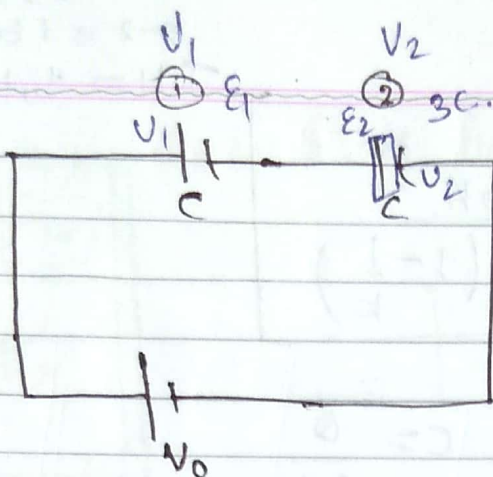 V₁ V₂
① ε₁ ② 3C.
V₁ ε₂ V₂
C C
V₀